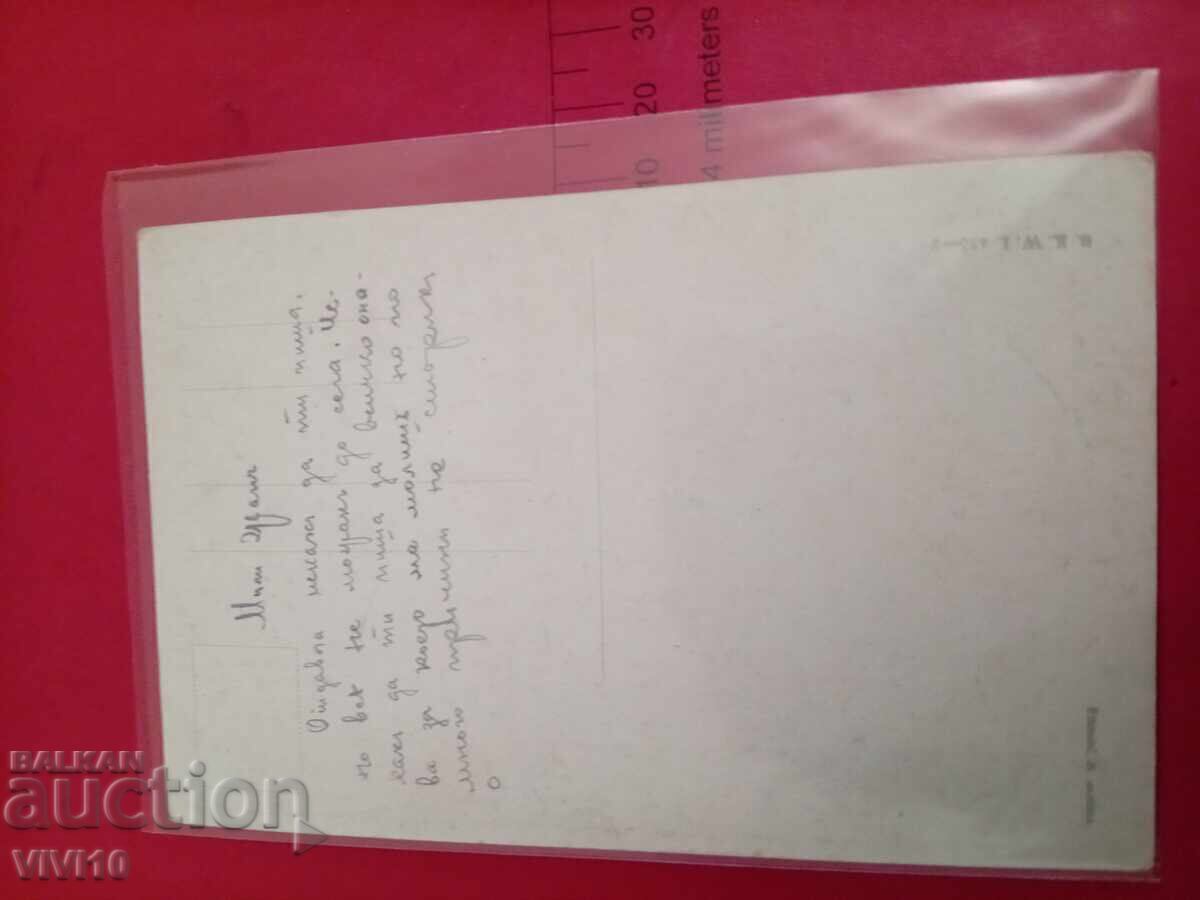 30
20
10
4 millimeters
Мили
Отдавна исках да ти пиша,
но все не можах до сега. Ис-
ках да ти пиша за всичко она-
ва за което ме молиш но по
много причини не
о
B. K. W. I.
BALKAN
auction
VIVI10